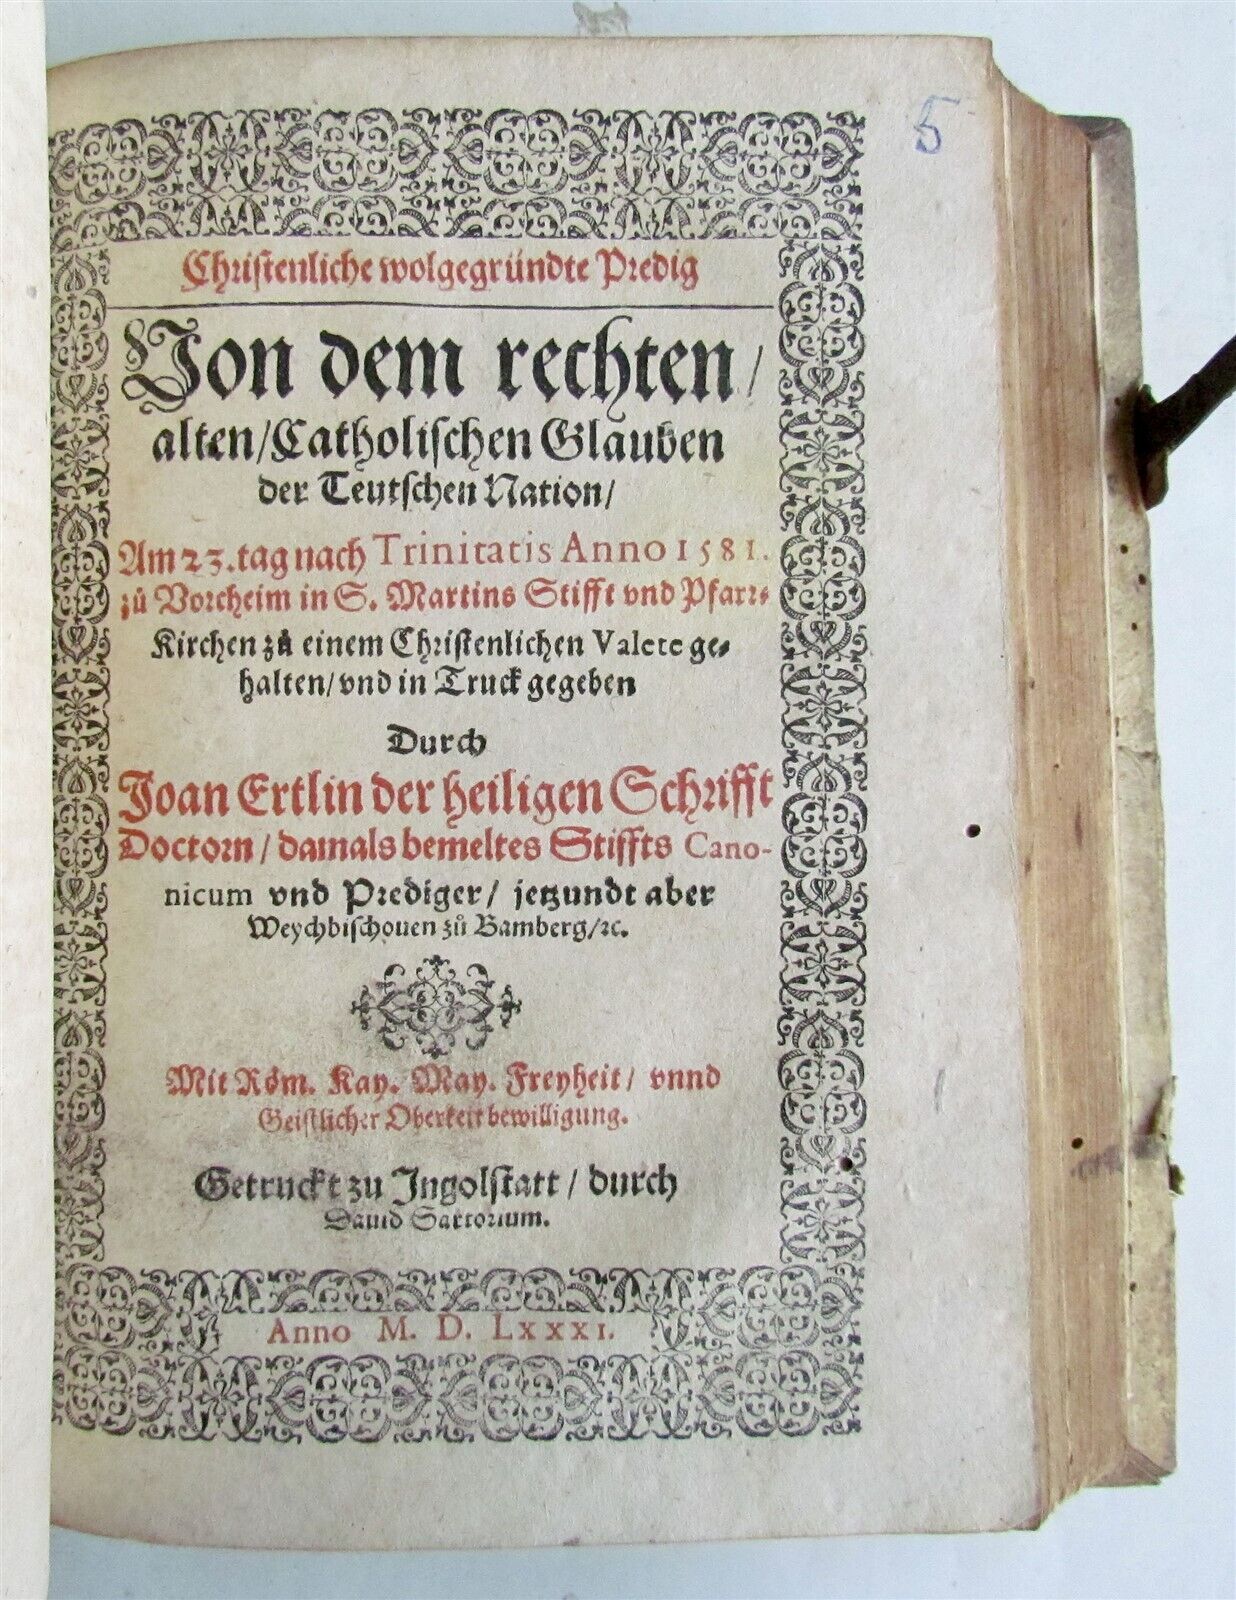 5
Christenliche wolgegründte Predig
Von dem rechten/
alten/Catholischen Glauben
der Teutschen Nation/
Am 23. tag nach Trinitatis Anno 1581.
zů Vorcheim in S. Martins Stifft vnd Pfarr⸗
Kirchen zů einem Christenlichen Valete ge⸗
halten/vnd in Truck gegeben
Durch
Joan Ertlin der heiligen Schrifft
Doctorn/damals bemeltes Stiffts Cano-
nicum vnd Prediger/ jetzundt aber
Weychbischouen zů Bamberg/ꝛc.
Mit Röm. Kay. May. Freyheit/ vnnd
Geistlicher Oberkeit bewilligung.
Getruckt zu Ingolstatt/ durch
Dauid Sartorium.
Anno M. D. LXXXI.